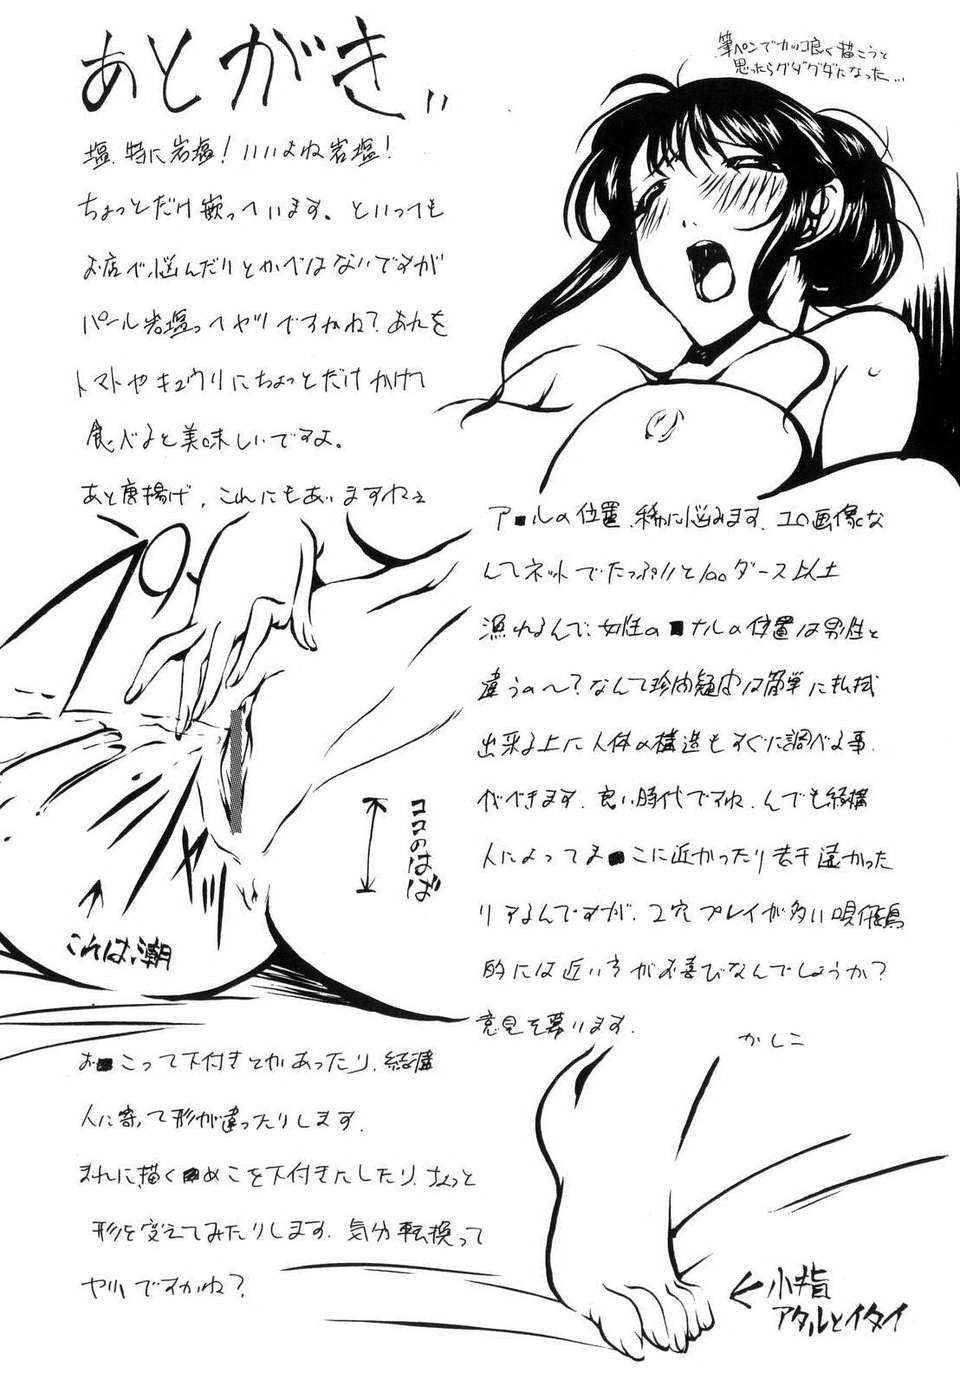 あとがき
筆ペンでカッコ良く描こうと
思ったらグダグダになった...
塩、特に岩塩！いいよね岩塩！
ちょっとだけ嵌っています。といっても
お店で悩んだりとかではないですが
パール岩塩ってヤツですかね？あれを
トマトやキュウリにちょっとだけかけて
食べると美味しいですよ。
あと唐揚げ、これにもあいますねぇ
ア■ルの位置、稀に悩みます、エロ画像な
んてネットでたっぷりと100ダース以上
漁れるんで、女性の■ナルの位置は男性と
違うの〜？なんて珍内疑問は簡単に払拭
出来る上に人体の構造もすぐに調べる事
ができます。良い時代ですね、んでも結構
人によってま■こに近かったり若干遠かった
リアるんですが、2穴プレイが多い唄飛鳥
的には近い方がお喜びなんでしょうか？
意見を募ります。
かしこ
ココのはば
これは、潮
お■こって下付きとかあったり、結構
人に寄って形が違ったりします。
まれに描く■めこを下付きにしたり、ちょっと
形を変えてみたりします、気分転換って
ヤツですかね？
小指
アタルとイタイ